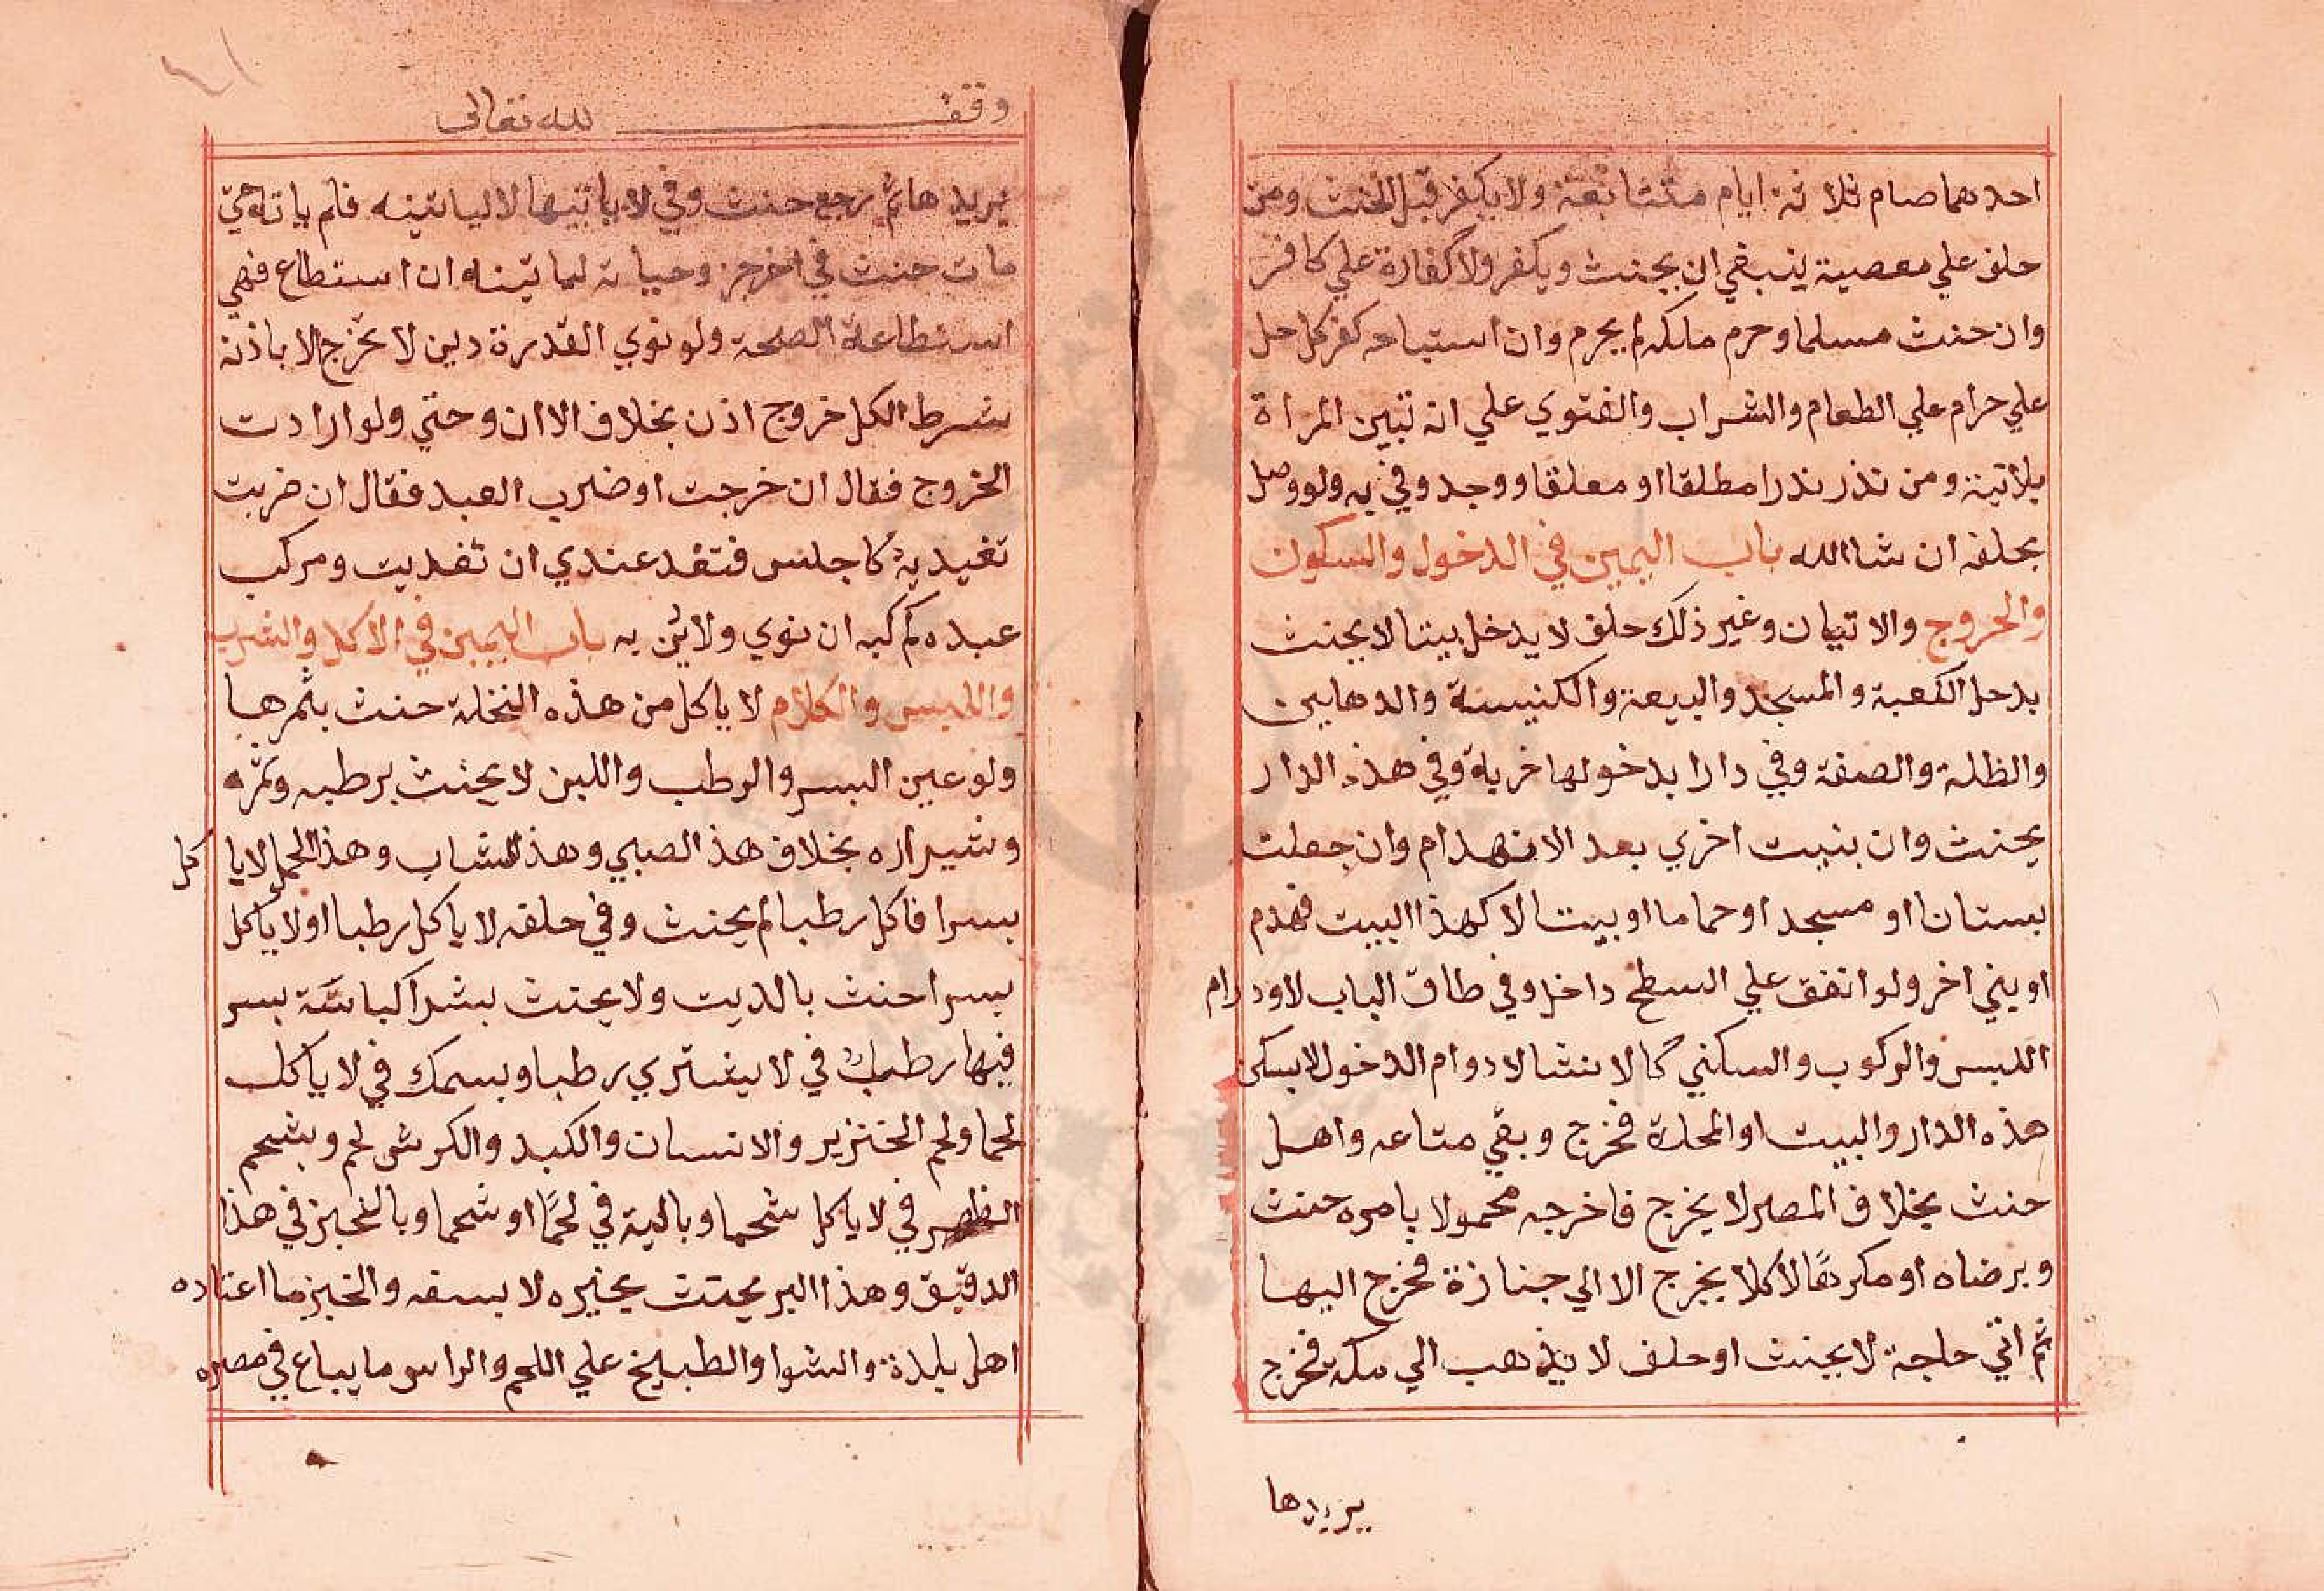 احدهما صام ثلاثة ايام متتابعة ولا يكفر قبل الحنث ومن
حلف علي معصية ينبغي ان يحنث ويكفر ولا كفارة علي كافر
وان حنث مسلما وحرم ملكه لم يحرم وان استباحه كفر كل حل
علي حرام علي الطعام والشراب والفتوي علي انه تبين المراة
بلا نية ومن نذر نذرا مطلقا او معلقا ووجد وفي به ولو وصل
بحلفه ان شا الله باب اليمين في الدخول والسكون
والخروج والاتيان وغير ذلك حلف لا يدخل بيتا لا يحنث
بدخل الكعبة والمسجد والبيعة والكنيسة والدهاليز
والظلة والصفة وفي دارا بدخولها خربة وفي هذه الدار
يحنث وان بنيت اخري بعد الانهدام وان جعلت
بستانا او مسجد او حماما او بيتا لا كهذا البيت فهدم
او بني اخر ولو اتفق علي السطح داخل وفي طاق الباب لا ودوام
اللبس والركوب والسكني كالانشا لا دوام الدخول لا يسكن
هذه الدار والبيت او المحلة فخرج وبقي متاعه واهل
حنث بخلاف المصر لا يخرج فاخرجه محمولا بامره حنث
وبرضاه او مكرها لا كلا يخرج الا الي جنازة فخرج اليها
ثم اتي حاجة لا يحنث او حلف لا يذهب الي مكة فخرج
يريدها
وقف لله تعالى
يريدها ثم رجع حنث وفي لا ياتيها لا لياتينه فلم ياته حتي
مات حنث في اخر جز وحياته لياتينه ان استطاع فهي
استطاعة الصحة ولو نوي القدرة دين لا تخرج الا باذنه
شرط لكل خروج اذن بخلاف الا ان وحتي ولو ارادت
الخروج فقال ان خرجت او ضرب العبد فقال ان ضربت
تغيدية كاجلس فتغد عندي ان تغديت ومركب
عبده كمركبه ان نوي ولا دين به باب اليمين في الاكل والشرب
واللبس والكلام لا ياكل من هذه النخلة حنث بثمرها
ولو عين البسر والرطب واللبن لا يحنث برطبه وتمره
وشيرازه بخلاف هذ الصبي وهذ الشاب وهذ الحمل لا يا كل
بسرا فاكل رطبا لم يحنث وفي حلفه لا ياكل رطبا او لا ياكل
بسرا حنث بالذيت ولا يحنث بشرا كباسة بسر
فيها رطب في لا يشتري رطبا وبسمك في لا ياكل
لحما ولحم الخنزير والانسان والكبد والكرش لحم وبشحم
الظهر في لا ياكل شحما وبالية في لحما او شحما وبالخبز في هذا
الدقيق وهذا البر يحنث بخبزه لا بسفه والخبز ما اعتاده
اهل بلدة والشوا والطبيخ علي اللحم والراس ما يباع في مصره